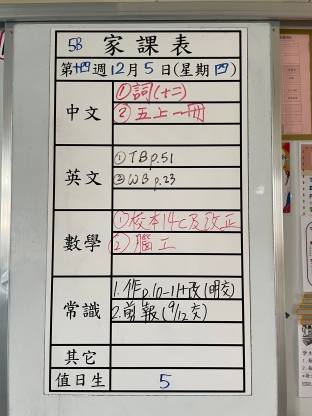 5B 家課表
第十四週12月5日(星期四)
中文
①詞(十二)
②五上一冊
英文
①TB p.51
②WB p.23
數學
①校本14C及改正
②腦工
常識
1.作p.10-11+改(明交)
2.剪報(9/12交)
其它
值日生 5